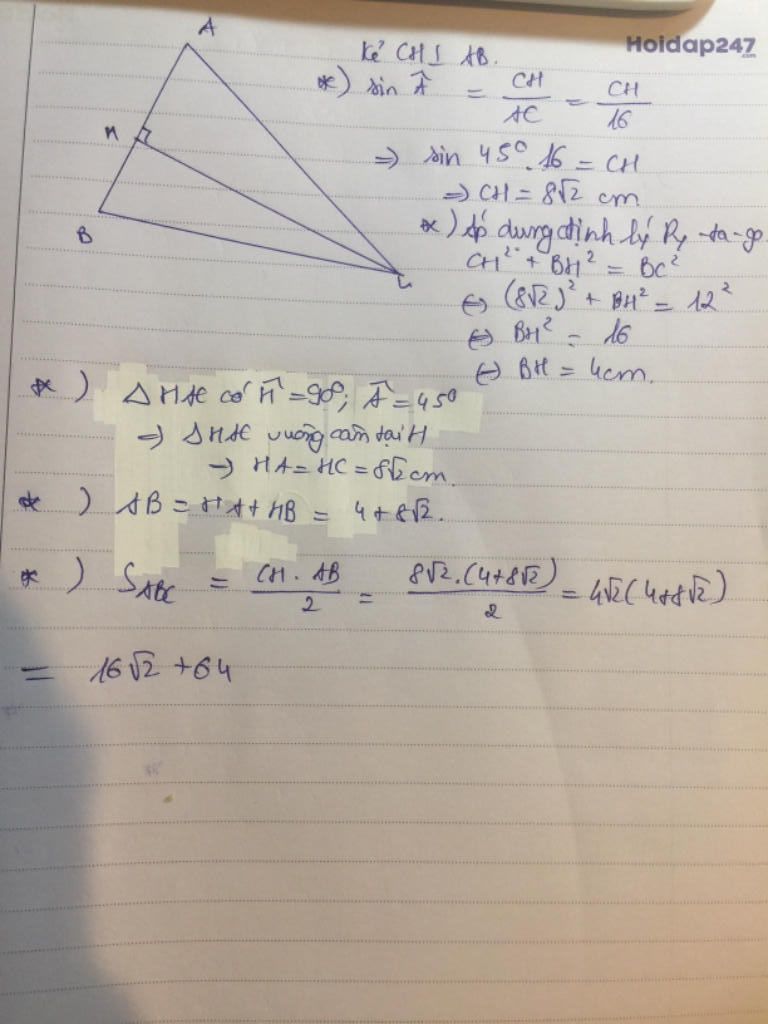 Hoidap247
.com
A
H
B
C
Kẻ CH ⊥ AB.
*) sin Â = CH/AC = CH/16
=> sin 45°.16 = CH
=> CH = 8√2 cm
*) Áp dụng định lý Py-ta-go
CH² + BH² = BC²
<=> (8√2)² + BH² = 12²
<=> BH² = 16
<=> BH = 4cm.
*) △HAC có Ĥ = 90°; Â = 45°
=> △HAC vuông cân tại H
=> HA = HC = 8√2 cm.
*) AB = HA + HB = 4 + 8√2.
*) S_ABC = CH.AB/2 = 8√2.(4+8√2)/2 = 4√2(4+8√2)
= 16√2 + 64